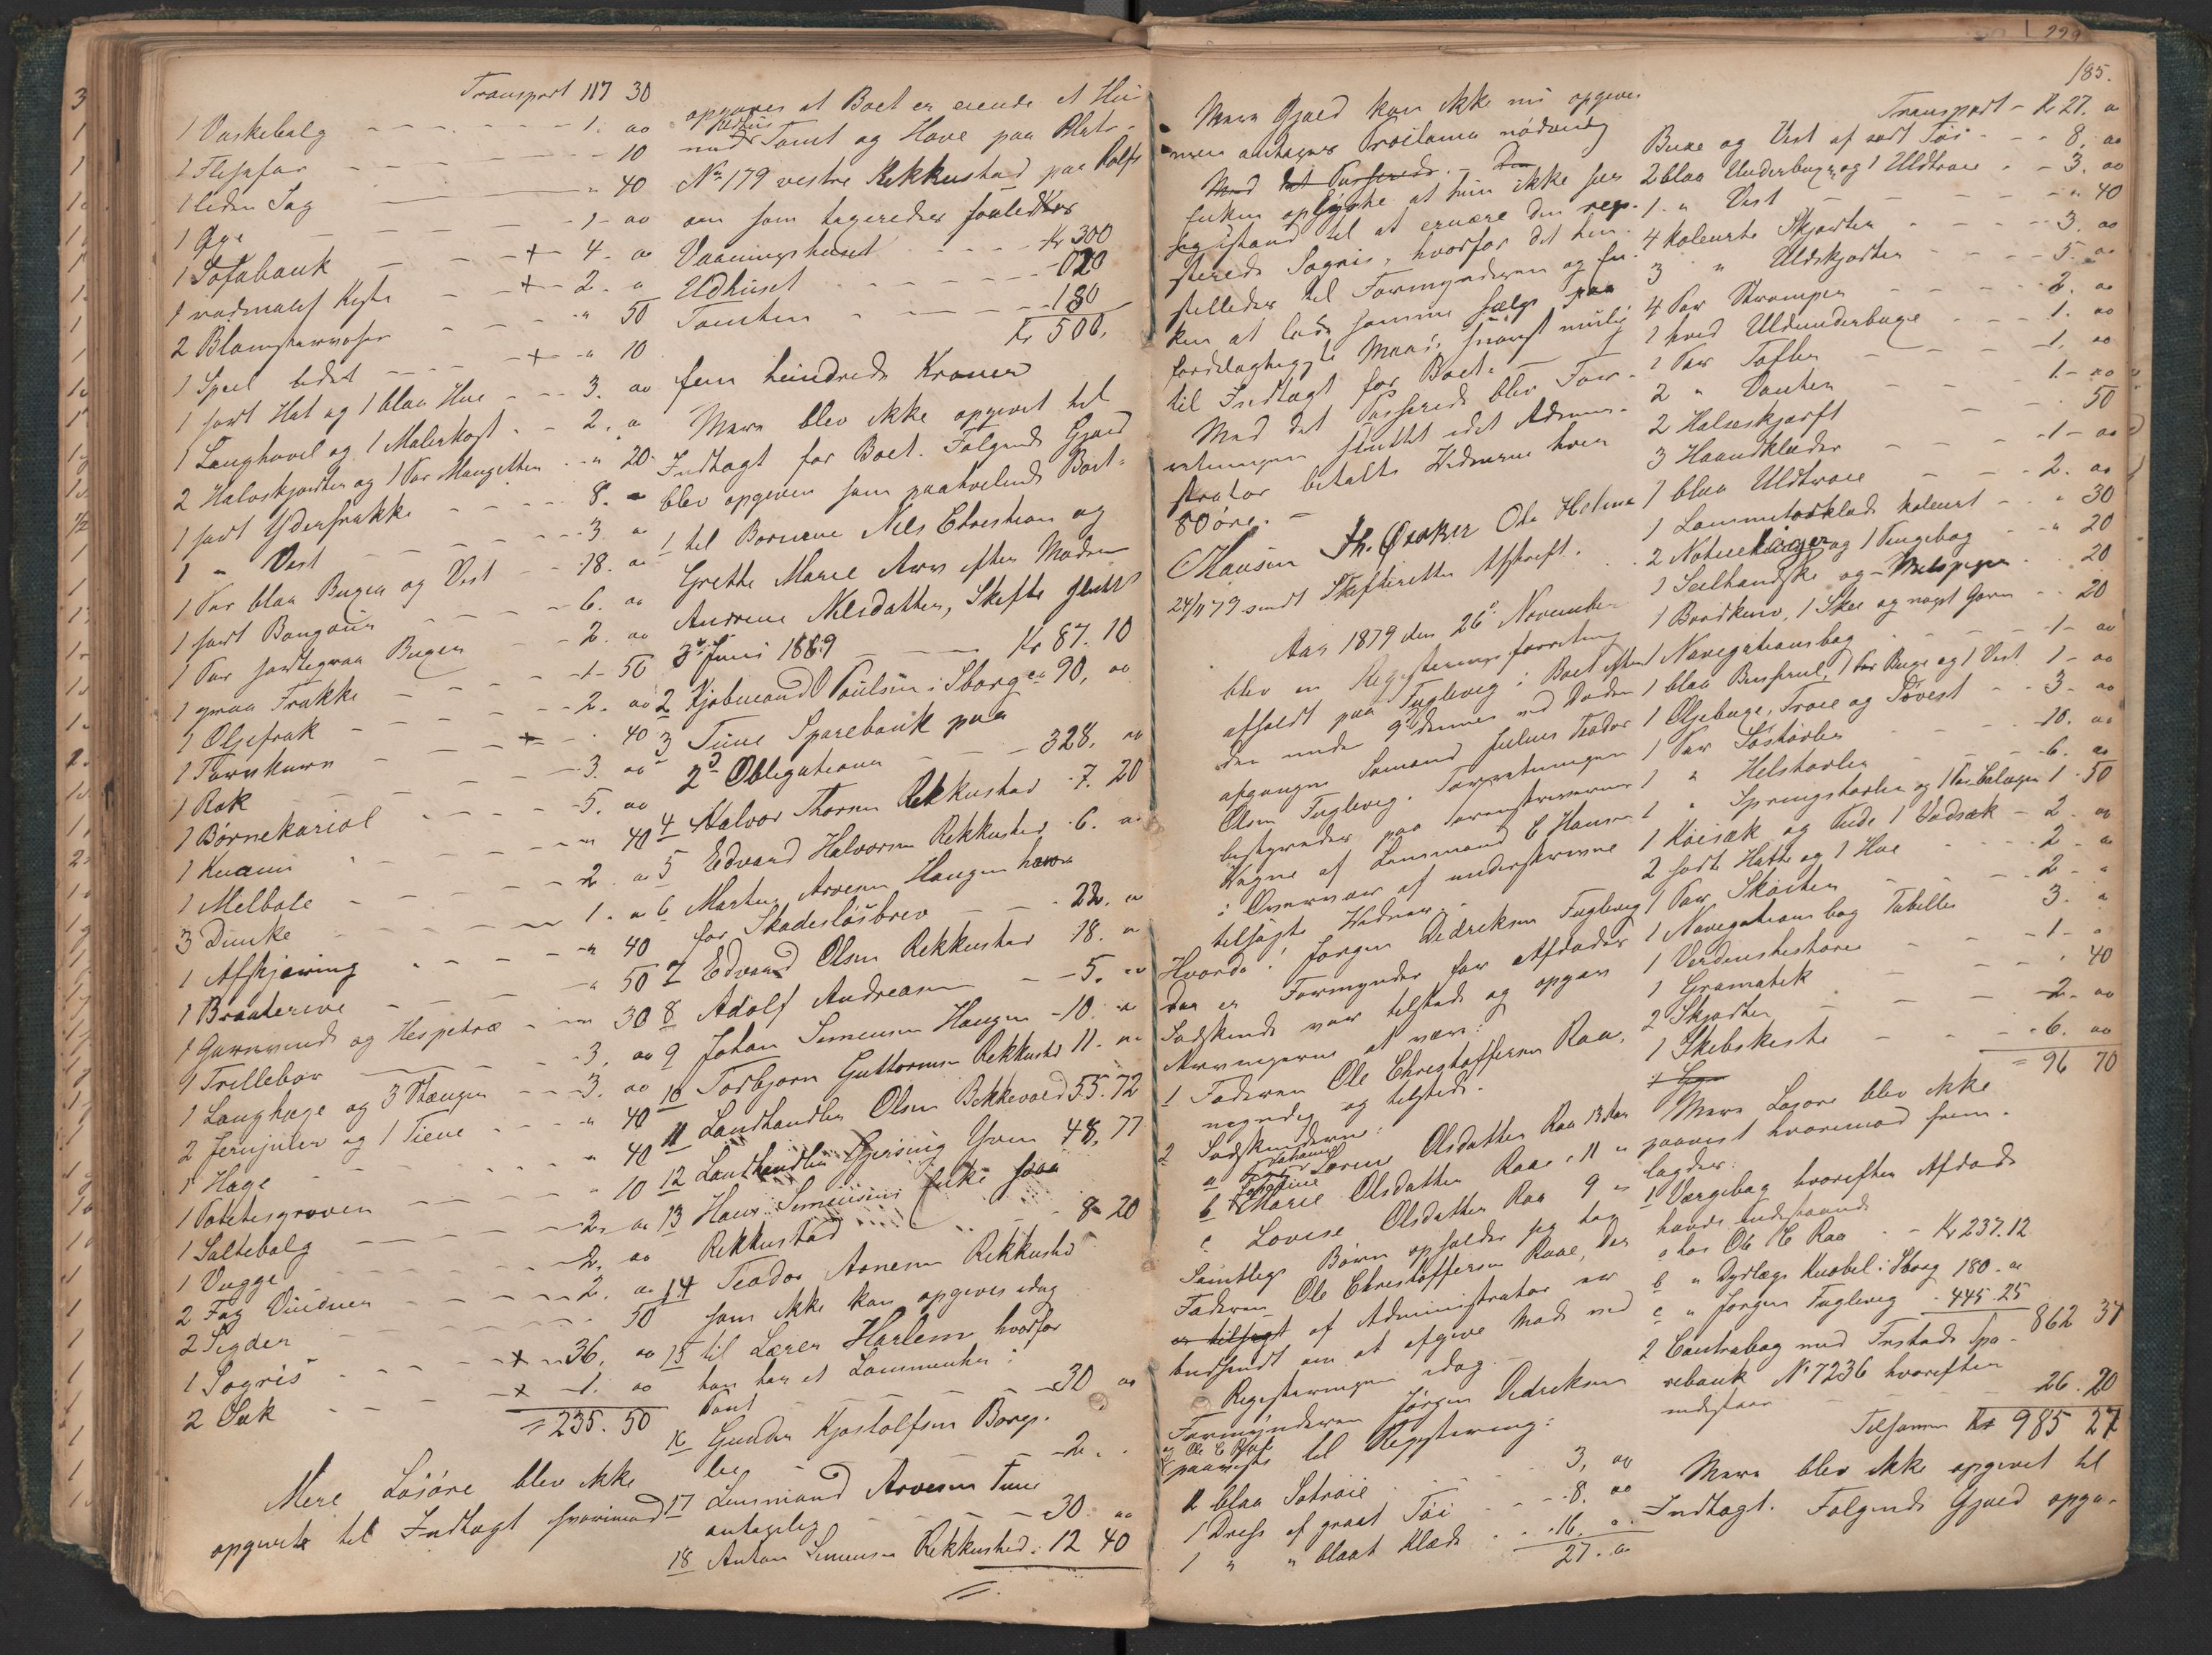 Transport 117 30
1 Vaskebalg - - - - 1. 00
1 Flesefar - - - 10
1 liden Sag - - - " 40
1 Øxe - - - 1- 00
1 Sofabænk - - + - 4. 00
1 rødmalet Kiste - - + - 2. "
2 Blomstervaser - - - " 50
1 Speil lidet - - + - " 10
1 sort Hat og 1 blaa Hue - - 3. 00
1 Langhøvel og 1 Malerkost - - 2. "
2 Halvskjorter og 1 Par Mangetter - - " 20
1 sort Yderfrakke - - - 8. "
1 " Vest - - - 3. "
1 Par blaa Buxer og Vest - - 18. 00
1 sort Bongour - - - 6. 00
1 Par sortegraa Buxer - - - 2. 00
1 graa Frakke - - - 1- 50
1 Oljefrak - - - 2. 00
1 Tornkurv - - + - 40
1 Rok - - - 3. 00
1 Børnekariol - - - 5. 00
1 Kværn - - - " 40
1 Melbøle - - - 2. "
3 Dunke - - - 1. "
1 Afskjæring - - - " 40
1 Brødterive - - - " 50
1 Garnvinde og Hespetræ - - " 30
1 Trillebør - - - 3. 00
1 Langhage og 3 Stænger - - 3. 00
2 Jernjuler og 1 Tiene - - - " 40
1 Hage - - - " 40
1 Potetesgræver - - - " 10
1 Saltebalg - - - 2. 00
1 Vugge - - - 2. 00
2 Fag Vinduer - - - 2. 00
2 Sigder - - - 50
1 Sogris - - + - 36. 00
2 Sæk - - + - 1. 00
= 235. 50
Mere Løsøre blev ikke
opgivet til Indtægt hvorimod
opgaves at Boet er eiende et Hus
med Udhus Tomt og Have paa Matr-
No 179 vestre Rekkustad paa Rolfs
øen som tageredes saaledes
Vaaningshuset - - - Kr 300
Udhuset - - - 020
Tomten - - - 180
Kr 500.
fem hundrede Kroner
Mere blev ikke opgivet til
Indtægt for Boet. Følgende Gjæld
blev opgiven som paahvilende Boet:
1 til Børnene Nils Christian og
Grethe Marie Arv efter Moderen
Andrine Nilsdatter, Skifte sluttet
3de Juni 1869 - - - Kr 87. 10
2 Kjøbmand Poulsen i Sborg ca 90, 00
3 Tune Sparebank paa
2de Obligationer - - - 328. 00
4 Halvor Thorsen Rekkustad - 7. 20
5 Edvard Halvorsen Rekkustad - 6. 00
6 Martin Arvesen Haugen
for Skadesløsbrev - - - 22. 00
7 Edvard Olsen Rekkustad - 18. "
8 Adolf Andreasen - - 5. 00
9 Johan Simensen Haugen - 10. 00
10 Torbjørn Guttormsen Rekkustad 11. 00
11 Landhandler Olsen Bekkevold 55. 72
12 Landhandler Gjersing Yven 48, 77
13 Hans Simensens Enke paa
Rekkustad - - - 8 20
14 Teodor Aanesen Rekkustad
som ikke kan opgives idag
15 til Lærer Harlem hvorfor
han har et Lommeuhr i
Pant - - - 30 00
16 Gunder Kjostolfsen Borge-
lie - - - 2. "
17 Lensmand Arvesen Tune
antagelig - - - 30 00
18 Anton Simensen Rekkustad. 12 40
229
185.
Mere Gjæld kan ikke nu opgives
men antages Proclama nødvendig
Med det Passerede. Den
Enken oplyste at hun ikke ser
sig istand til at ernære den regi-
strerede Sogris, hvorfor det hen-
stilledes til Formynderen og En-
ken at lade samme sælge paa
fordelagtigste Maade snarest mulig
til Indtægt for Boet.
Med det Passerede blev For-
retningen sluttet idet Admini-
strator betalte Vidnerne hver
80 øre. -
CHansen Th. Øraker Ole Holme
24/11 79 sendt Skifteretten Afskrift.
Aar 1879 den 26de November
blev en Registreringsforretning
afholdt paa Fuglevig i Boet efter
den under 9 dennes ved Døden
afgangne Sømand Julius Teodor
Olsen Fuglevig. Forretningen
bestyredes paa Sorenskriverens
Vegne af Lensmand C Hansen
i Overvær af underskrevne
tilsagte Vidner. -
Hvorda: Jørgen Didriksen Fuglevig
der er Formynder for Afdødes
Sødskende var tilstede og opgav
Arvingerne at være:
1 Faderen Ole Christoffersen Raa,
myndig og tilstede.
2 Sødskendene:
a Johanne Laurine Olsdatter Raa 13 Aar
b Josefine Marie Olsdatter Raa - 11 "
c Lovise Olsdatter Raa 9 "
Samtlige Børn opholder sig hos
Faderen Ole Christoffersen Raae, der
er tilsagt af Administrator var
budsendt om at afgive Møde ved
Registreringen idag. -
Formynderen Jørgen Didriksen
og Ole C Raa
paaviste til Registrering:
1 blaa Søtrøie - - - 3, 00
1 Dress af graat Tøi - - - 8. 00
1 " " blaat Klæde - - - 16. "
27. 00
Transport - Kr 27. 00
Buxe og Vest af sort Tøi - - - 8. 00
2 blaa Underbuxer og 1 Uldtrøie - - 3. 00
1 " Vest - - - " 40
4 kolerte Skjorter - - - 3. 00
3 " Uldskjorter - - - 5. 00
4 Par Strømper - - - 2. 00
1 hvid Uldunderbuxe - - - 1. 00
1 Par Tøfler - - - 1. 00
2 " Vanter - - - 1- 00
2 Halseskjærft - - - 50
3 Haandklæder - - - 1- 00
1 blaa Uldtrøie - - - 2. 00
1 Lommetørklæde koleurt - - " 30
2 Notitsbøger og 1 Pengebog - - " 20
1 Seilhandske og - - 20
1 Brødkniv, 1 Skee og noget Garn - - 20
1 Navigationsbog - - - 1- 00
1 blaa Buserul, 1 Par Buxe og 1 Vest 1- 00
1 Oljebuxe, Trøie og Søvest - - 3- 00
1 Par Søstøvler - - - 10. 00
1 " Helstøvler - - - 6. 00
1 " Springstøvler og 1 Par Galoger 1. 50
1 Køisæk og Pude 1 Vadsæk - 2. 00
2 sorte Hatte og 1 Hue - - - 2. "
1 Par Skøiter - - - 2- "
1 Navigations bog Tabeller 3. "
1 Verdenshistorie - - - 1- "
1 Gramatik - - - " 40
2 Skjorter - - - 2- 00
1 Skibskiste - - - 6. 00
= 96 70
Mere Løsøre blev ikke
paavist hvorimod frem-
lagdes:
1 Værgebog hvorefter Afdøde
havde indestaaende
a hos Ole C Raa - - Kr 237. 12
b " Dyrlæge Knobel i Sborg 180. 00
c " Jørgen Fuglevig - 445. 25
862 37
2 Contrabog med Frstads Spa-
rebank No 7236 hvorefter
indestaar - - - 26. 20
Tilsammen Kr 985 27
Mere blev ikke opgivet til
Indtægt. Følgende Gjæld opga-